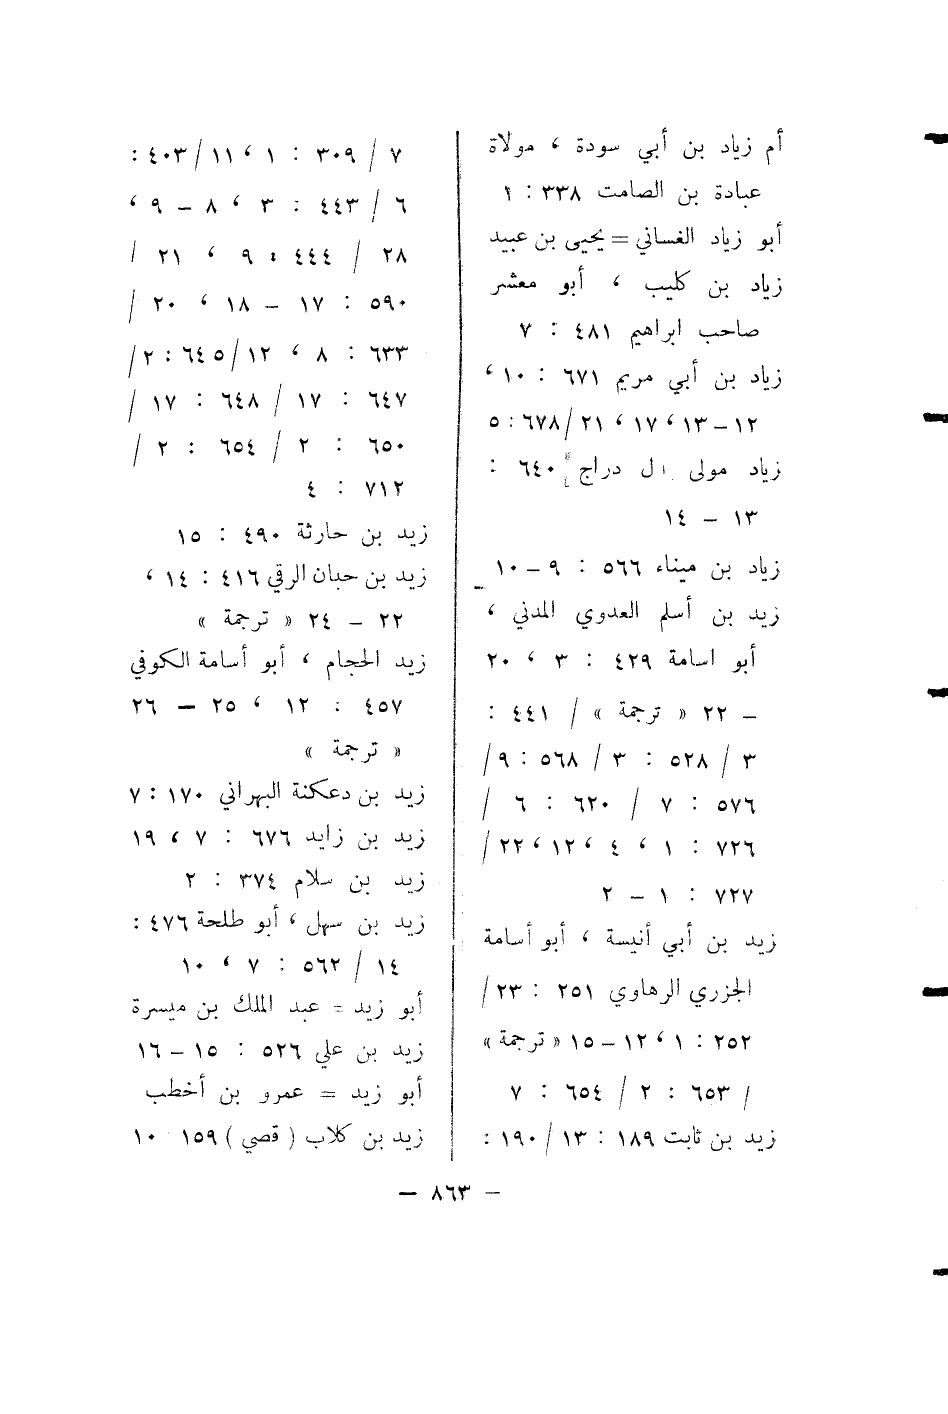 أم زياد بن أبي سودة ، مولاة
عبادة بن الصامت ٣٣٨ : ١
أبو زياد الغساني = يحيى بن عبيد
زياد بن كليب ، أبو معشر
صاحب ابراهيم ٤٨١ : ٧
زياد بن أبي مريم ٦٧١ : ١٠ ،
١٢ – ١٣ ، ١٧ ، ٢١ / ٦٧٨ : ٥
زياد مولى ال دراج ٦٤٠ :
١٣ – ١٤
زياد بن ميناء ٥٦٦ : ٩ – ١٠
زيد بن أسلم العدوي المدني ،
أبو اسامة ٤٢٩ : ٣ ، ٢٠
– ٢٢ « ترجمة » / ٤٤١ :
٣ / ٥٢٨ : ٣ / ٥٦٨ : ٩ /
٥٧٦ : ٧ / ٦٢٠ : ٦ /
٧٢٦ : ١ ، ٤ ، ١٢ ، ٢٢ /
٧٢٧ : ١ – ٢
زيد بن أبي أنيسة ، أبو أسامة
الجزري الرهاوي ٢٥١ : ٢٣ /
٢٥٢ : ١ ، ١٢ – ١٥ « ترجمة »
/ ٦٥٣ : ٢ / ٦٥٤ : ٧
زيد بن ثابت ١٨٩ : ١٣ / ١٩٠ :
٧ / ٣٠٩ : ١ ، ١١ / ٤٠٣ :
٦ / ٤٤٣ : ٣ ، ٨ – ٩ ،
٢٨ / ٤٤٤ : ٩ ، ٢١ /
٥٩٠ : ١٧ – ١٨ ، ٢٠ /
٦٣٣ : ٨ ، ١٢ / ٦٤٥ : ٢ /
٦٤٧ : ١٧ / ٦٤٨ : ١٧ /
٦٥٠ : ٢ / ٦٥٤ : ٢ /
٧١٢ : ٤
زيد بن حارثة ٤٩٠ : ١٥
زيد بن حبان الرقي ٤١٦ : ١٤ ،
٢٢ – ٢٤ « ترجمة »
زيد الحجام ، أبو أسامة الكوفي
٤٥٧ : ١٢ ، ٢٥ – ٢٦
« ترجمة »
زيد بن دعكنة البهراني ١٧٠ : ٧
زيد بن زايد ٦٧٦ : ٧ ، ١٩
زيد بن سلام ٣٧٤ : ٢
زيد بن سهل ، أبو طلحة ٤٧٦ :
١٤ / ٥٦٢ : ٧ ، ١٠
أبو زيد = عبد الملك بن ميسرة
زيد بن علي ٥٢٦ : ١٥ – ١٦
أبو زيد = عمرو بن أخطب
زيد بن كلاب ( قصي ) ١٥٩ ١٠
– ٨٦٣ –